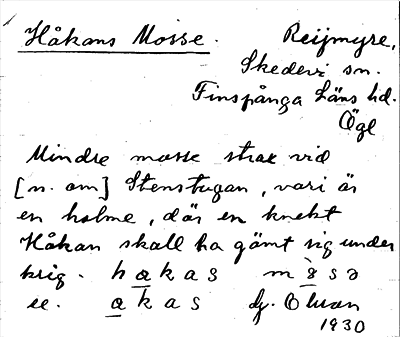 Håkans Mosse. Reijmyre,
Skedevi sn.
Finspånga Läns hd.
Ögl
Mindre mosse strax vid
[n. om] Stenstugan, vari är
en holme, där en knekt
Håkan skall ha gömt sig under
krig. hakas m s ə
se. akas dj.
1930